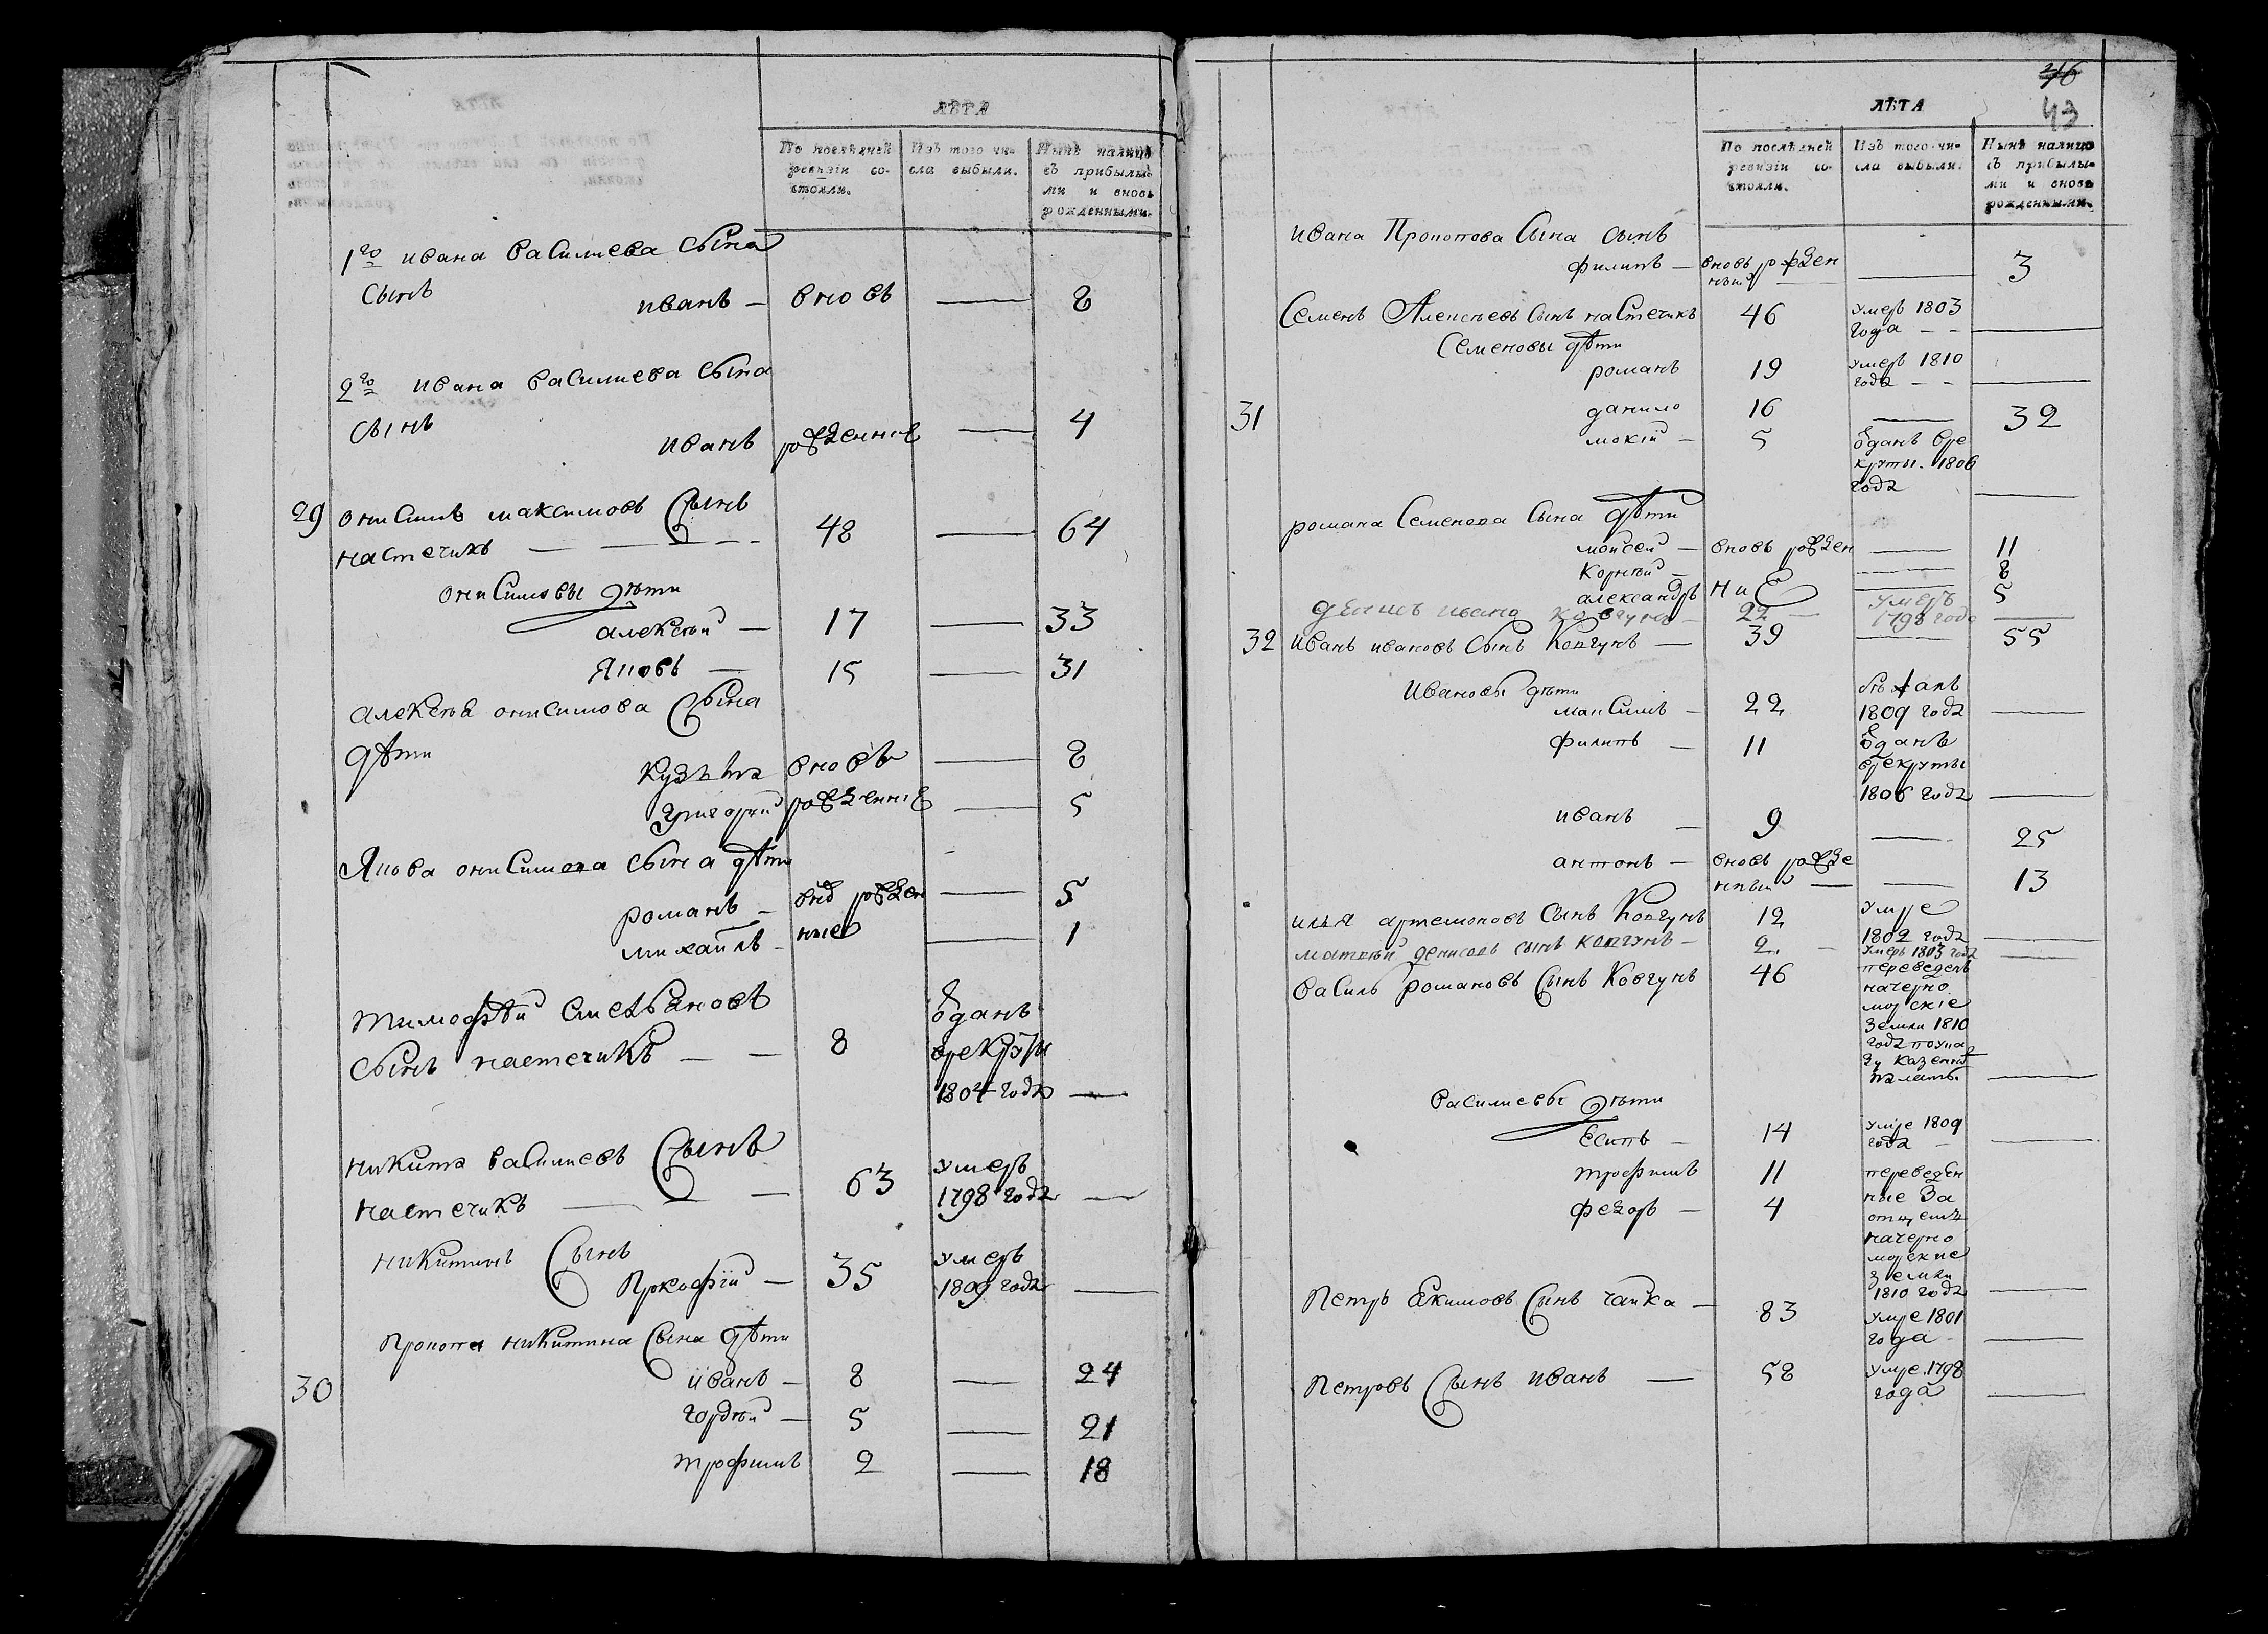 ЛѢТА
По послѣдней ревизіи состояли.
Изъ того числа выбыли.
Нынѣ налицо съ прибылыми и вновь рожденными.
1го ивана василиева сына
сынъ
иванъ — вновь — 8
2го ивана василиева сына
сынъ
иванъ рожденніе — 4
29 онисимъ максимовъ сынъ
настечикъ — 48 — 64
онисимовы дѣти
алексѣй — 17 — 33
Яковъ — 15 — 31
алексѣя онисимова сына
дѣти
кузьма вновь — 8
григорий рожденніе — 5
Якова онисимова сына дѣти
романъ — внов рожден — 5
михайлъ — ные — 1
тимофѣй
сынъ настечикъ — — 8
одан
врекруты
1804 года —
никита василиевъ сынъ
умеръ
настечикъ — — — 63 1798 года —
никитинъ сынъ
умеръ
Пркофій — 35 1809 года —
Прокопа никитина сына дѣти
30 иванъ — 8 — 24
гордѣй — 5 — 21
трофимъ 2 — 18
46
43
ЛѢТА
По послѣдней ревизіи состояли.
Изъ того числа выбыли.
Нынѣ налицо съ прибылыми и вновь рожденными.
ивана Прокопова сына сынъ
филипъ — вновь рожден
ный — — 3
Семенъ Алексѣевъ сынъ настечикъ 46 умеръ 1803
года — — —
Семеновы дѣти
романъ 19 умеръ 1810
года — — —
31 данило 16 — 32
мокій — 5 оданъ вре
круты. 1806
года —
романа Семенова сына дѣти
мойсей — вновь рожден — 11
Корнѣй — — 8
александръ ние — 5
денисъ ивано Ковгунъ — 22 — умеръ
1798 года —
32 Иванъ ивановъ сынъ Ковгунъ — 39 — 55
Ивановы дѣти
максимъ — 22 бѣжалъ
1809 года —
филипъ — 11 оданъ
врекруты
1806 года —
иванъ — 9 — 25
антонъ — вновь рожде
нный — — 13
илья артемоновъ сынъ Ковгунъ 12 умре
1802 года —
матвѣй денисовъ сынъ ковгунъ — 2 — умеръ 1803 года —
василь романовъ сынъ Ковгунъ 46 переведенъ
начерно
морскіе
земли 1810
года поука
зу казенной
палаты —
василиевы дѣти
Есипъ — 14 умре 1809
года — —
трофимъ 11 переведен
ные за
федоръ — 4 отцемъ
начерно
морские
земли
1810 года —
Петръ Екимовъ сынъ чайка — 83 умре 1801
года — —
Петровъ сынъ иванъ — 58 умре 1798
года —